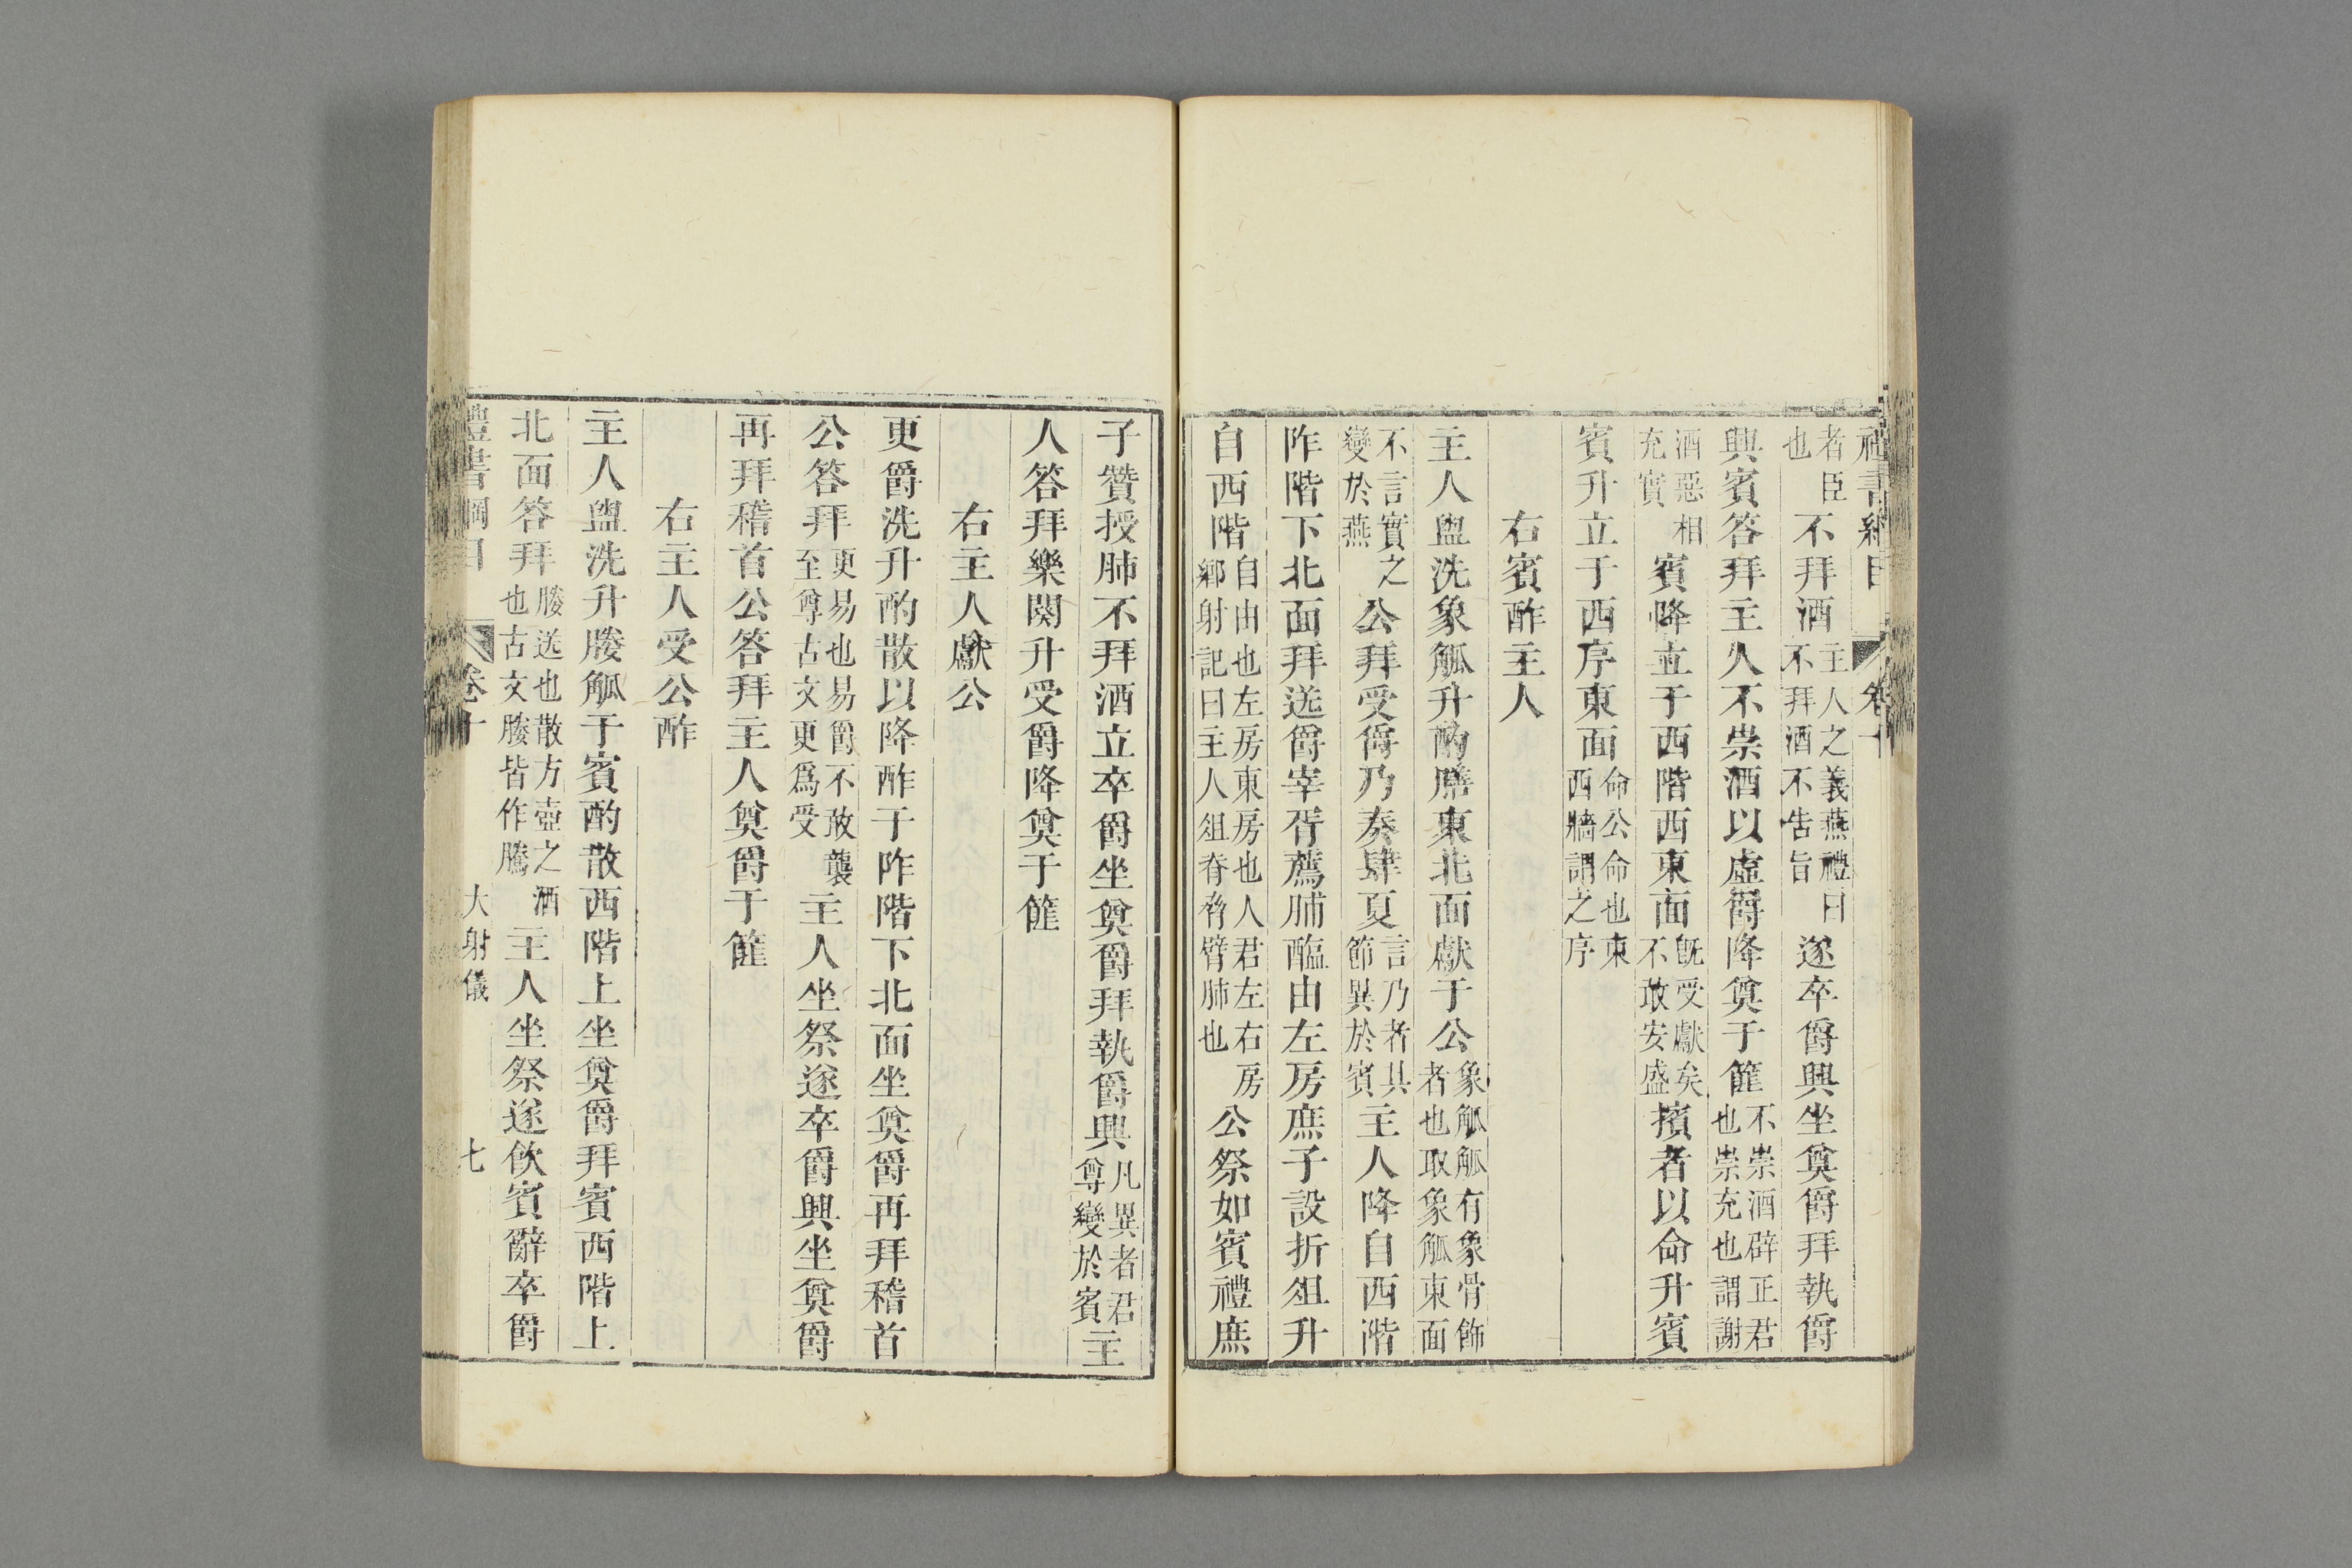 禮書綱目 卷十
者臣也不拜酒主人之義燕禮曰不拜酒不告旨遂卒爵興坐奠爵拜執爵
興賓答拜主人不崇酒以虛爵降奠于篚不崇酒辟正君也崇充也謂謝
酒惡相充實賓降立于西階西東面旣受獻矣不敢安盛擯者以命升賓
賓升立于西序東面命公命也東西牆謂之序
右賓酢主人
主人盥洗象觚升酌膳東北面獻于公象觚觚有象骨飾者也取象觚東面
不言實之變於燕公拜受爵乃奏肆夏言乃者其節異於賓主人降自西階
阼階下北面拜送爵宰胥薦脯醢由左房庶子設折俎升
自西階自由也左房東房也人君左右房鄉射記曰主人俎脊脅臂肺也公祭如賓禮庶
子贊授肺不拜酒立卒爵坐奠爵拜執爵興凡異者君尊變於賓主
人答拜樂闋升受爵降奠于篚
右主人獻公
更爵洗升酌散以降酢于阼階下北面坐奠爵再拜稽首
公答拜更易也易爵不敢襲至尊古文更爲受主人坐祭遂卒爵興坐奠爵
再拜稽首公答拜主人奠爵于篚
右主人受公酢
主人盥洗升媵觚于賓酌散西階上坐奠爵拜賓西階上
北面答拜媵送也散方壺之酒也古文媵皆作騰主人坐祭遂飲賓辭卒爵
禮書綱目 卷十 大射儀 七